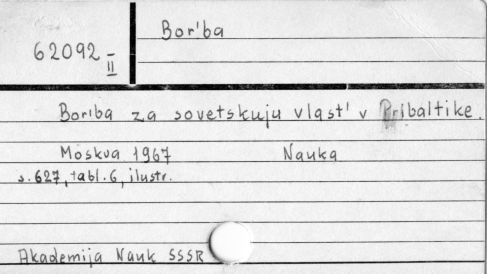 Bor'ba
62092 II
Bor'ba za sovetskuju vlast' v Pribaltike.
Moskva 1967 Nauka
s. 627, tabl. 6, ilustr.
Akademija Nauk SSSR